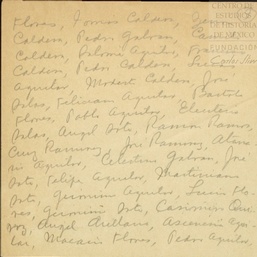 Flores, Tomás Caldera,
Caldera, Pedro Galván,
Caldera, Paloma Aguilar,
Caldera, Pedro Caldera,
Aguilar, Modest Caldera, José
Salas, Feliciano Aguilar, Bartolo
Flores, Pablo Aguilar, Eleuterio
Salas, Angel Soto, Ramón Ramos,
Cruz Ramírez, José Ramírez,
Aguilar, Celestino Galván, José
Soto, Felipe Aguilar, Martiniano
Soto, Gerónimo Aguilar, Luis Flo-
res, Gerónimo Soto, Casimiro
Angel Arellano, Ascención
Macario Flores, Pedro Aguilar,
CENTRO DE
ESTUDIOS
DE HISTORIA
DE MEXICO
FUNDACIÓN
Carlos Slim